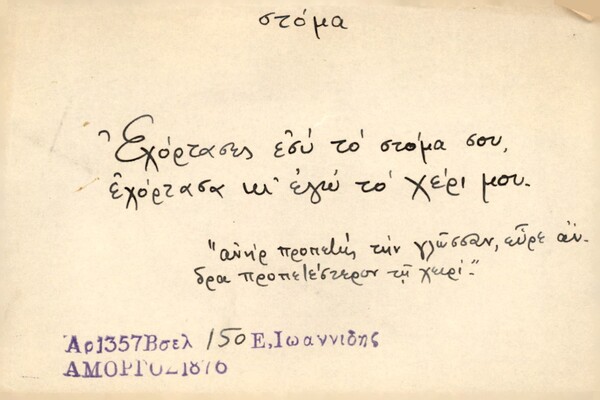 στόμα
Ἐχόρτασες ἐσύ τό στόμα σου,
ἐχόρτασα κι' ἐγώ τό χέρι μου.
"ἀνήρ προπετής τήν γλῶσσαν, εὗρε ἄν-
δρα προπετέστερον τῇ χειρί."
Ἀρ1357Βσελ 150 Ε,Ιωαννιδης
ΑΜΟΡΓΟΣ1876